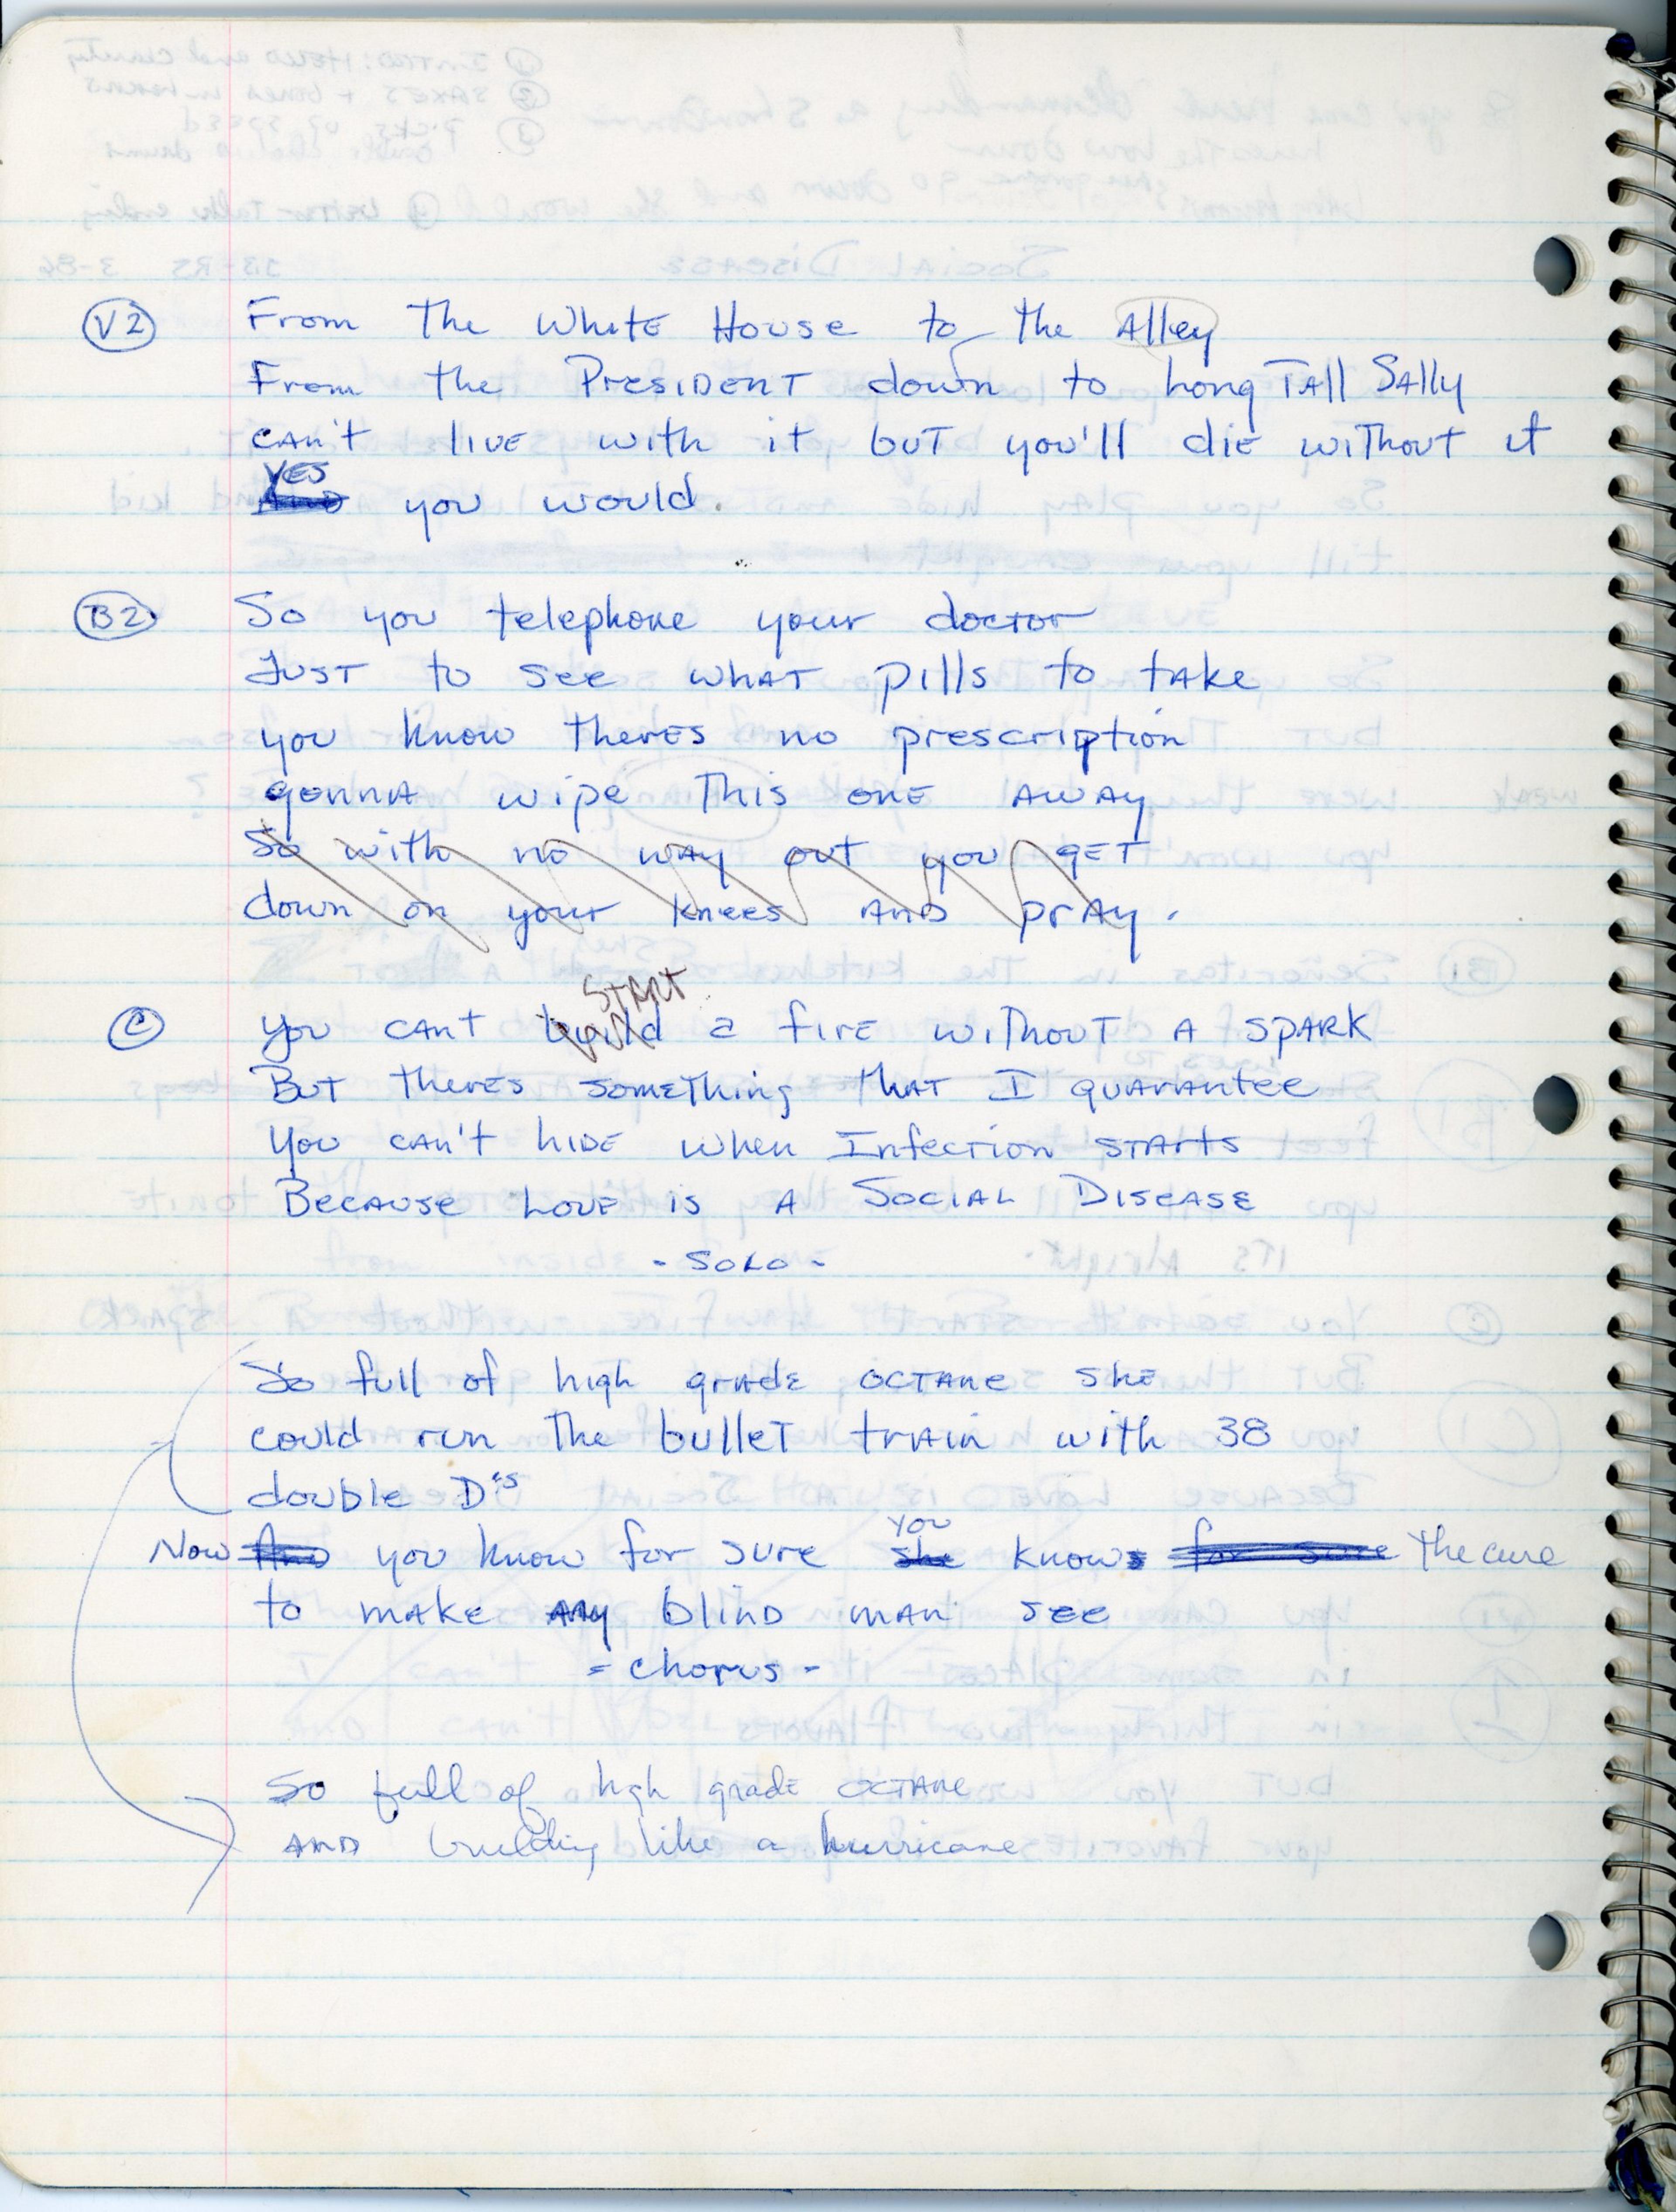 V2 From The White House to the Alley
From the President down to Long Tall Sally
can't live with it but you'll die without it
YES
And you would.
B2. So you telephone your doctor
Just to see what pills to take
you know theres no prescription
gonna wipe this one away
So with no way out you get
down on your knees and pray.
START
C You cant build a fire without a spark
But theres something that I guarantee
You can't hide when Infection starts
Because Love is a Social Disease
- SOLO -
So full of high grade octane she
could run the bullet train with 38
double D's
you
Now And you know for sure she knows for sure the cure
to make any blind man see
- chorus -
So full of high grade octane
and building like a hurricane